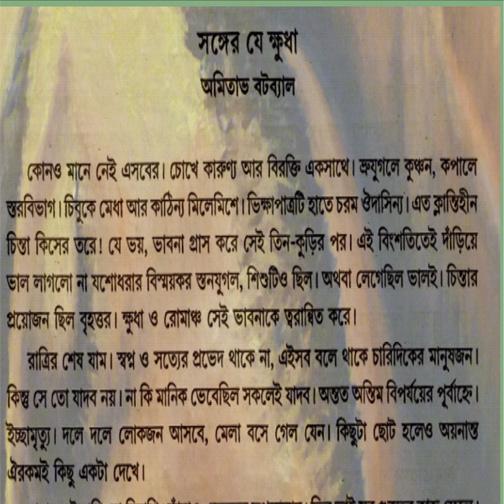 সঙ্গের যে ক্ষুধা
অমিতাভ বটব্যাল
কোনও মানে নেই এসবের। চোখে কারুণ্য আর বিরক্তি একসাথে। ভ্রুযুগলে কুঞ্চন, কপালে
স্তরবিভাগ। চিবুকে মেধা আর কাঠিন্য মিলেমিশে। ভিক্ষাপাত্রটি হাতে চরম ঔদাসিন্য। এত ক্লান্তিহীন
চিন্তা কিসের তরে! যে ভয়, ভাবনা গ্রাস করে সেই তিন-কুড়ির পর। এই বিংশতিতেই দাঁড়িয়ে
ভাল লাগলো না যশোধরার বিস্ময়কর স্তনযুগল, শিশুটিও ছিল। অথবা লেগেছিল ভালই। চিন্তার
প্রয়োজন ছিল বৃহত্তর। ক্ষুধা ও রোমাঞ্চ সেই ভাবনাকে ত্বরান্বিত করে।
রাত্রির শেষ যাম। স্বপ্ন ও সত্যের প্রভেদ থাকে না, এইসব বলে থাকে চারিদিকের মানুষজন।
কিন্তু সে তো যাদব নয়। না কি মানিক ভেবেছিল সকলেই যাদব। অন্তত অন্তিম বিপর্যয়ের পূর্বাহ্নে।
ইচ্ছামৃত্যু। দলে দলে লোকজন আসবে, মেলা বসে গেল যেন। কিছুটা ছোট হলেও অয়নান্ত
ঐরকমই কিছু একটা দেখে।